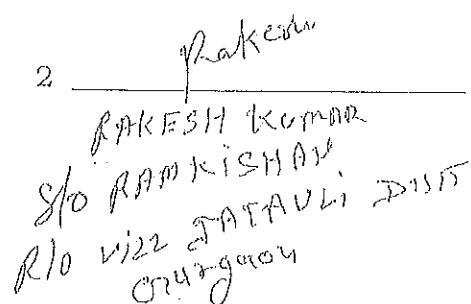 Rakesh
2
RAKESH KUMAR
S/o RAMKISHAN
R/o Vill JATAULI DISTT
Gurgaon